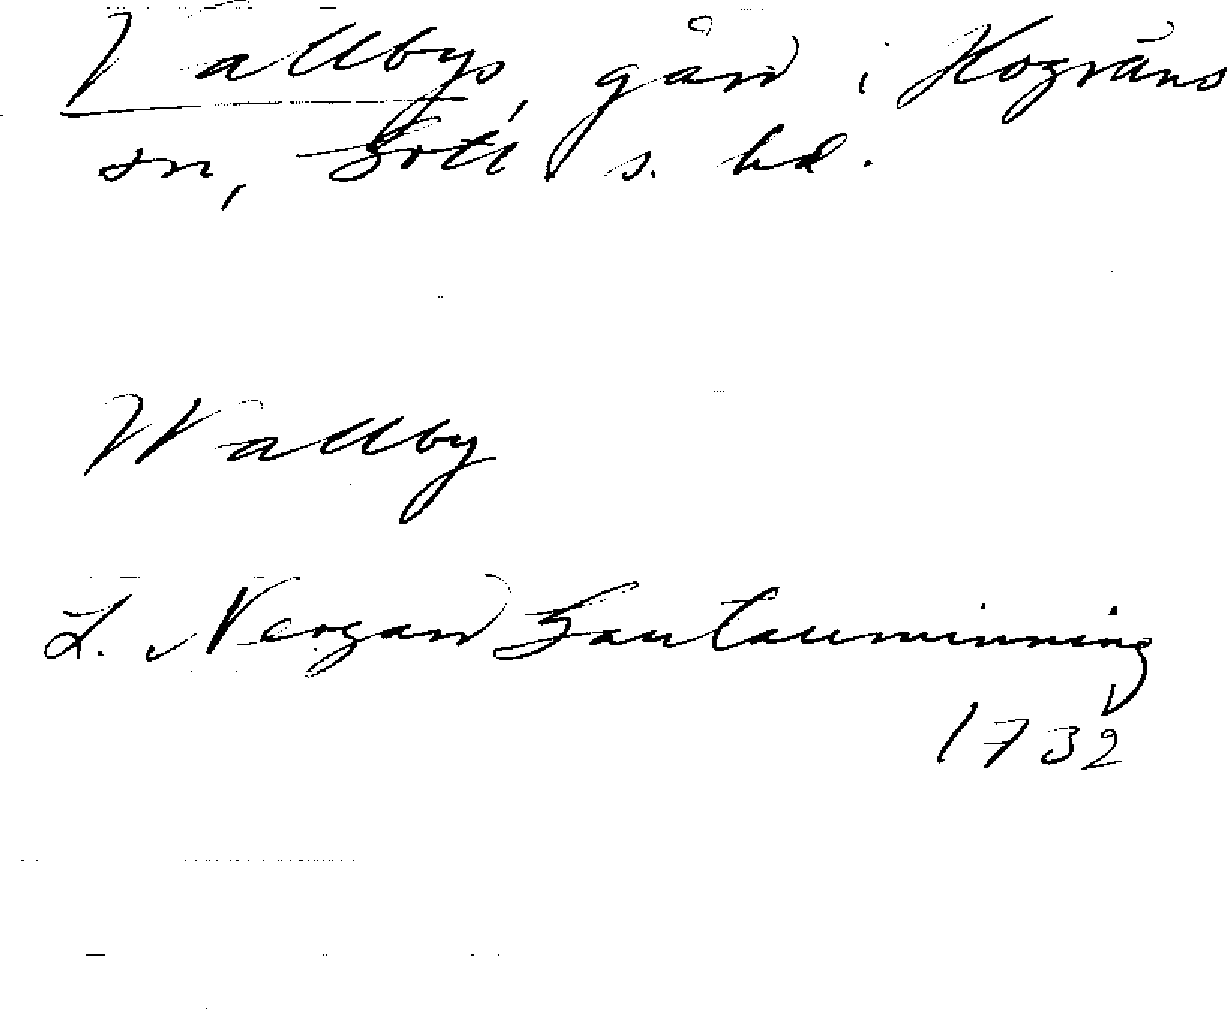 Vallbys, gård i Hogräns
sn, Gotl. s. hd.
Wallby
L. Neogard Gautauminning
1732